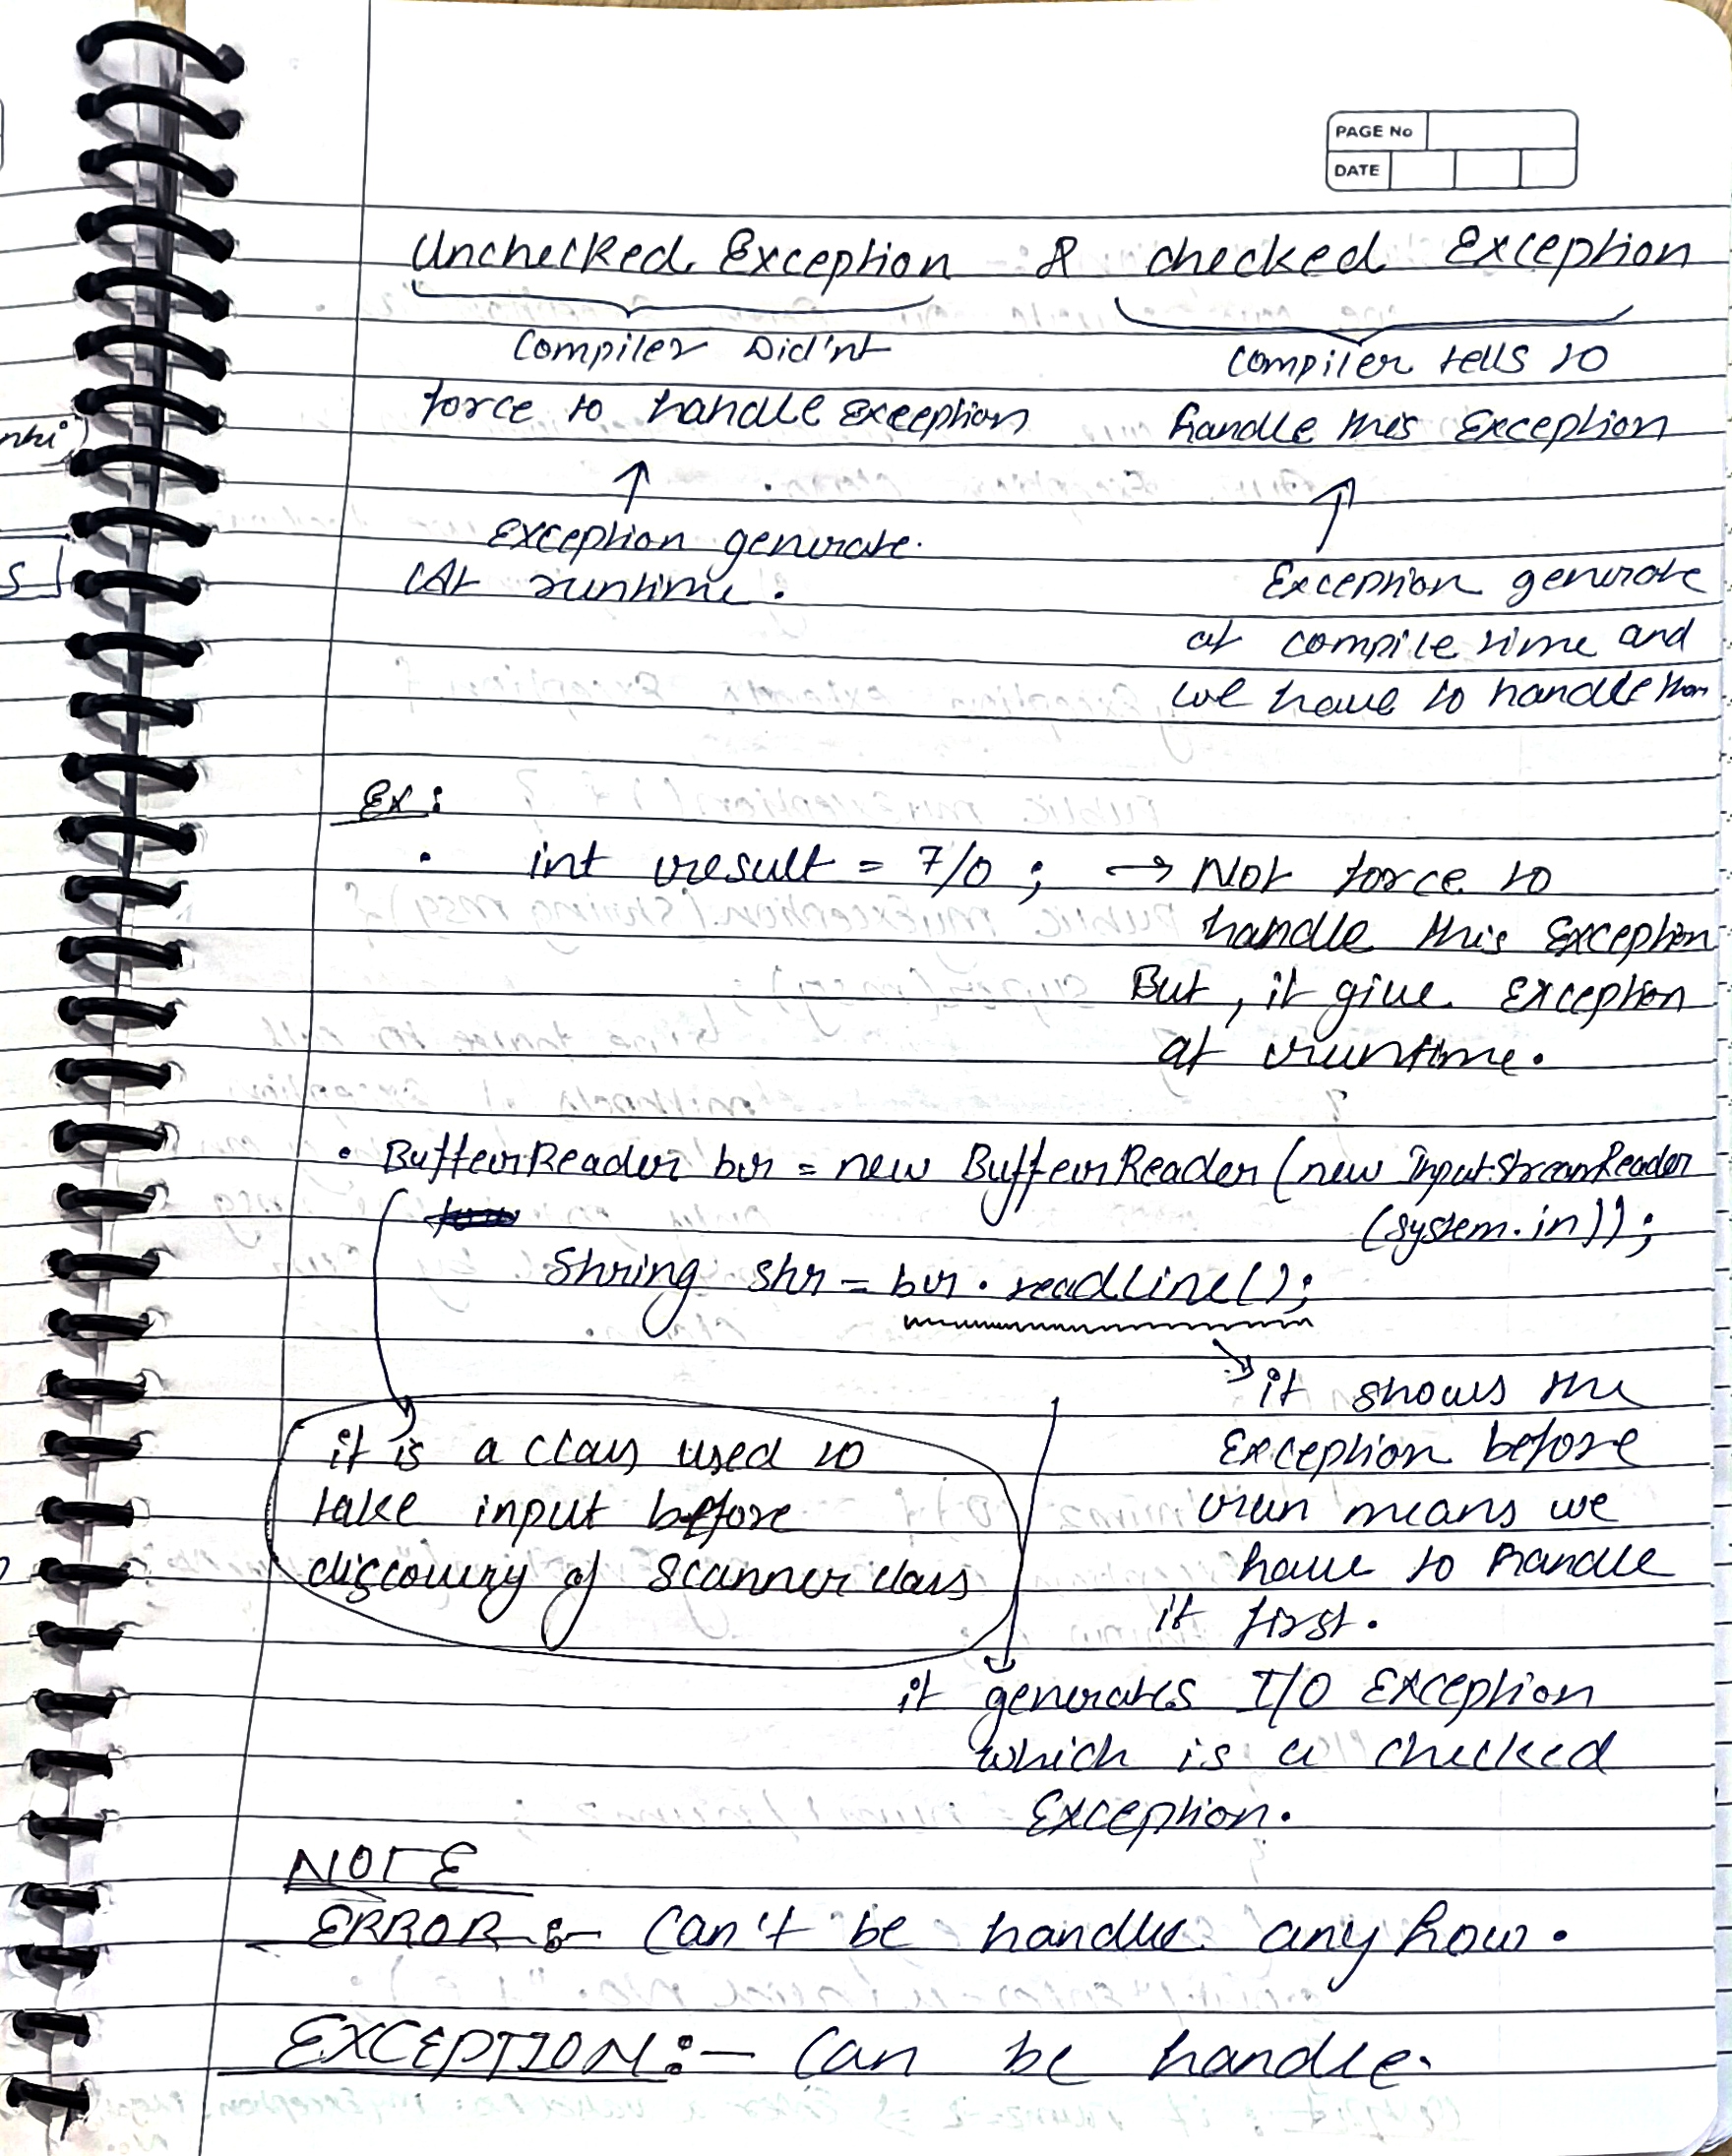 PAGE No
DATE
Unchecked Exception & checked Exception
Compiler Did'nt
force to handle exception
compiler tells to
handle this Exception
exception generate.
At runtime.
Exception generate
at compile time and
we have to handle them
Ex:
• int result = 7/0 ; → Not force to
handle this Exception
But, it give exception
at runtime.
• BufferReader br = new BufferReader (new InputStreamReader
(system.in));
String str = br.readLine();
it is a class used to
take input before
discovery of Scanner class
it shows the
Exception before
run means we
have to handle
it first.
it generates I/O Exception
which is a checked
Exception.
NOTE
ERROR :- Can't be handle any how.
EXCEPTION :- Can be handle.